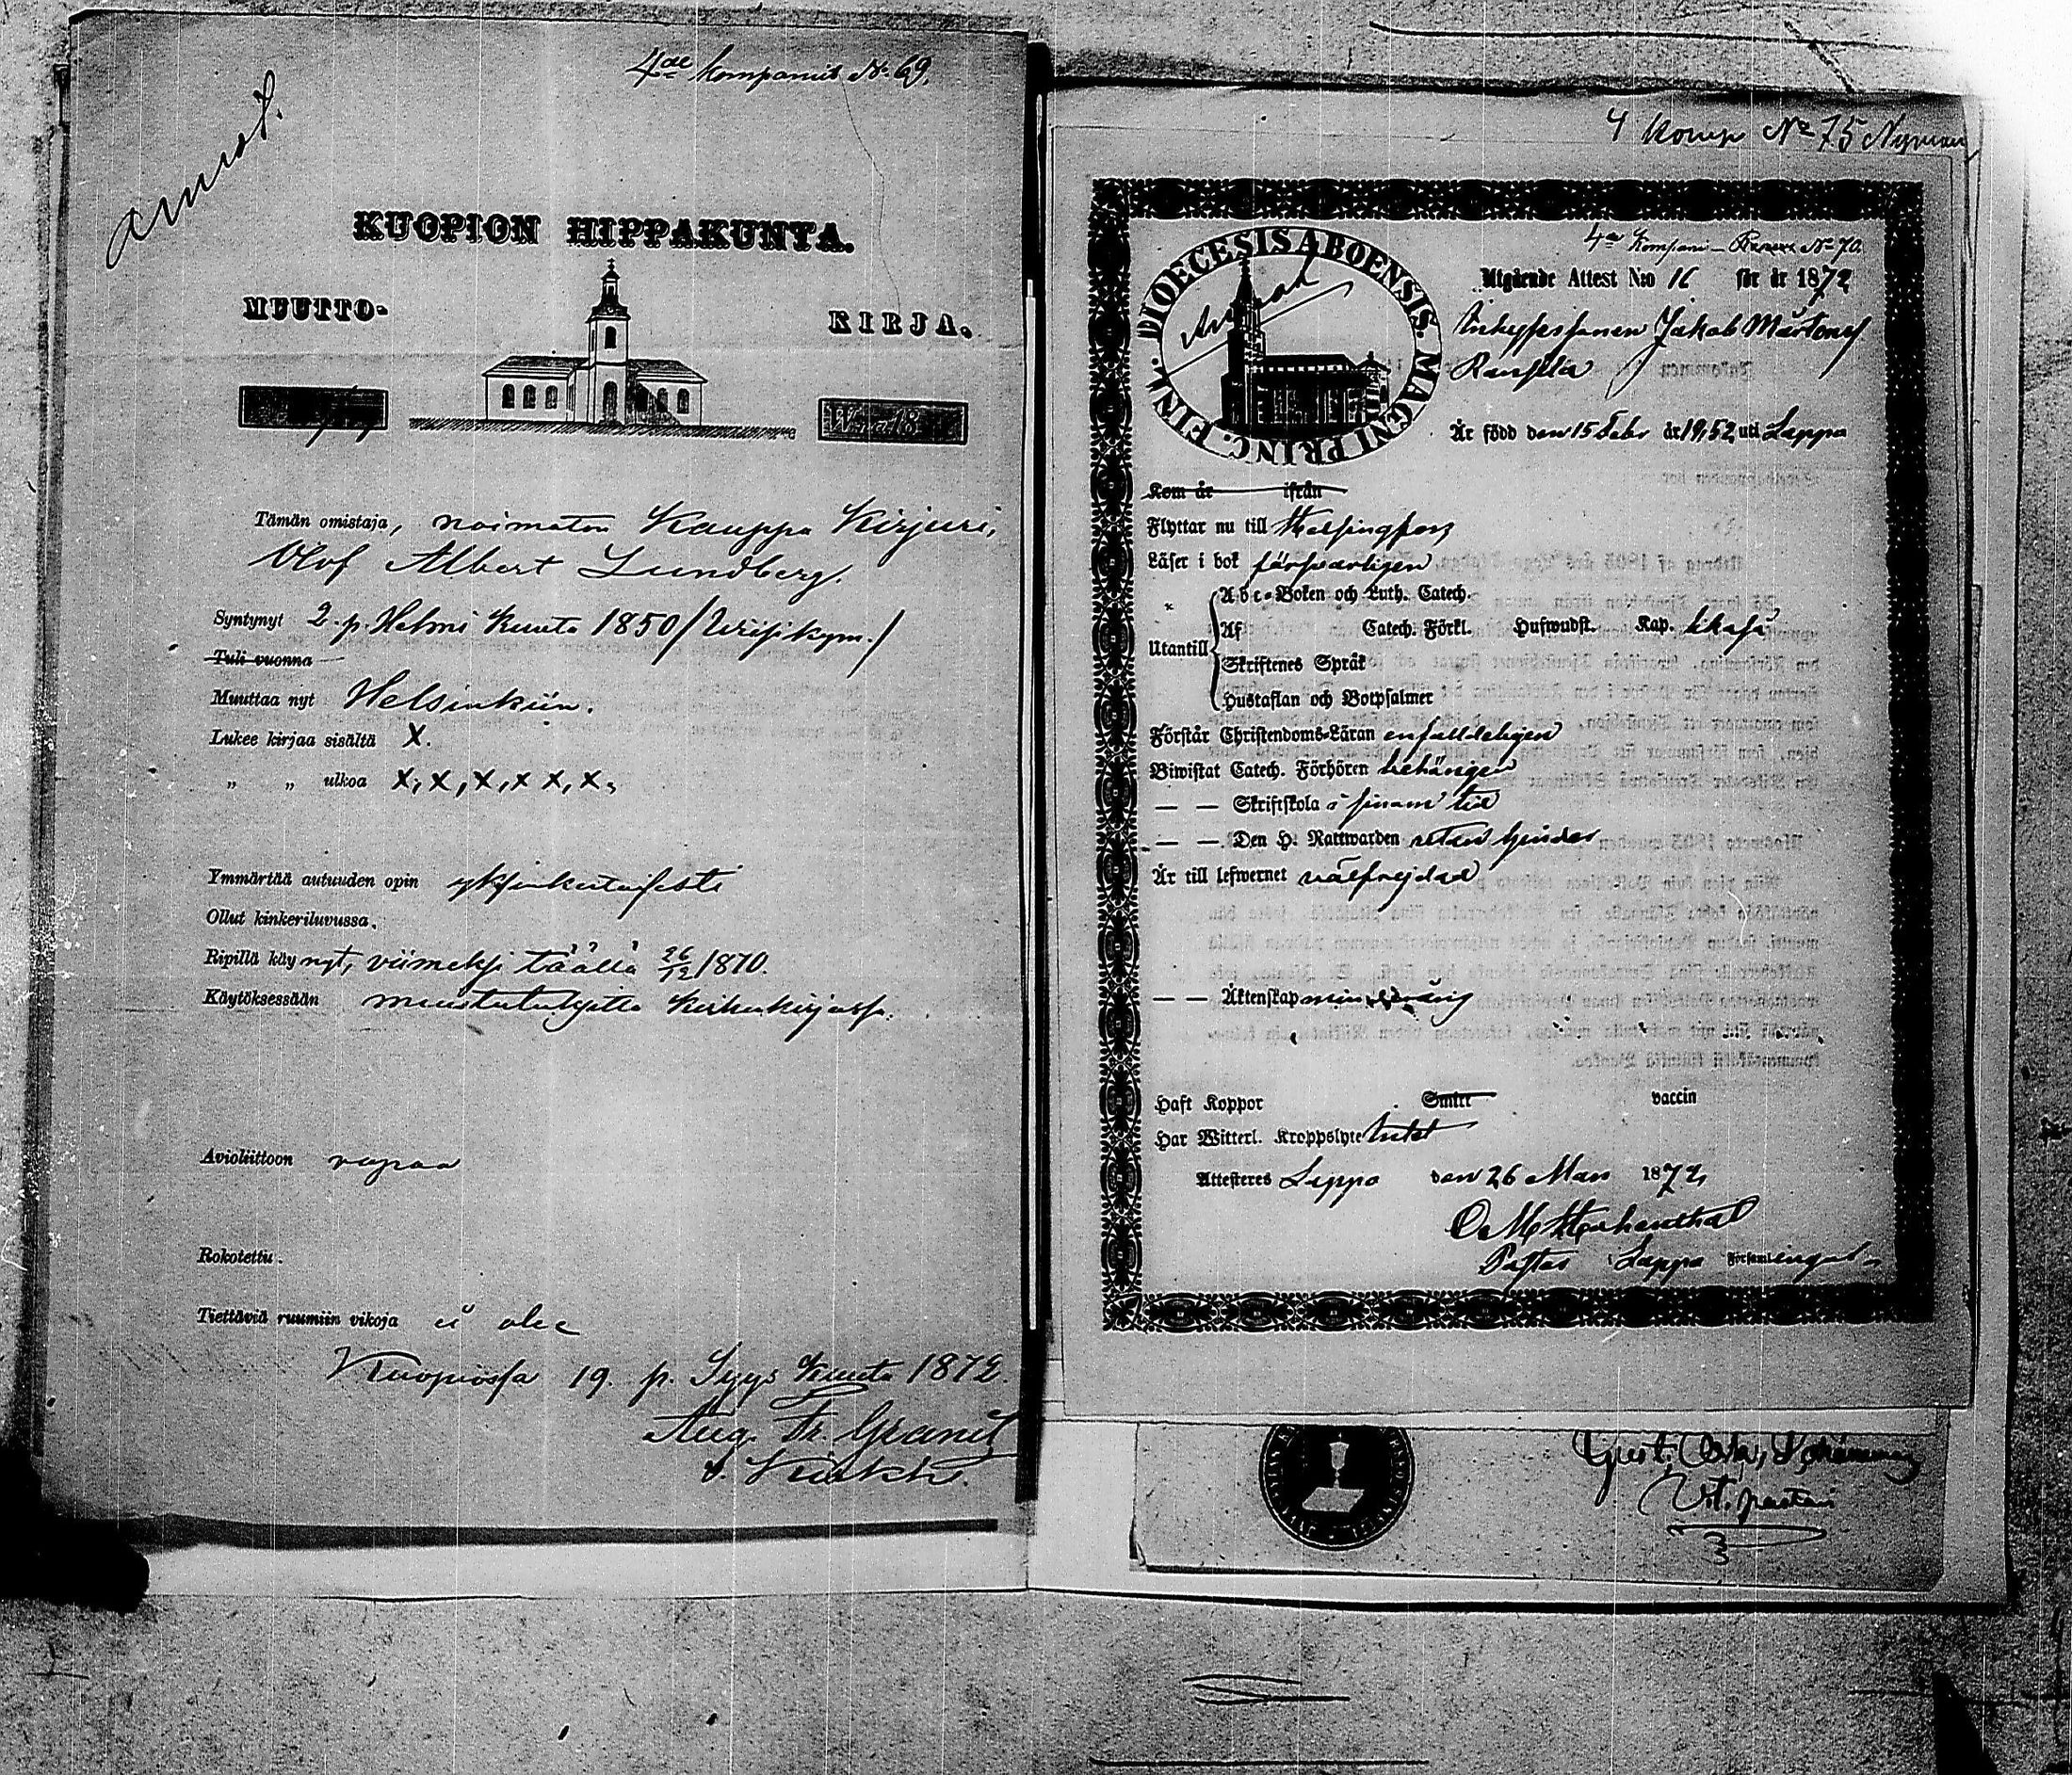 4de Kompanit No. 69.
KUOPION HIPPAKUNTA.
MUUTTO-
KIRJA.
Tämän omistaja, naimaton Kauppa Kirjuri,
Olof Albert Lundberg.
Syntynyt 2. p. Helmi Kuuta 1850
Tuli vuonna
Muuttaa nyt Helsinkiin.
Lukee kirjaa sisältä X.
„ „ ulkoa X, X, X, X X, X,
Ymmärtää autuuden opin yksinkertaisesti
Ollut kinkeriluvussa.
Ripillä käynyt, viimeksi täällä 26/12 1870.
Käytöksessään muistutuksitta kirkonkirjassa.
Avioliittoon vapaa
Rokotettu.
Tiettäviä ruumiin vikoja ei ole
Kuopiossa 19. p. Syys Kuuta 1872.
Aug. Fr. Granit
4 Komp No 75 Nyman
4de Kompani No 70.
DIOECESIS ABOENSIS. MAGNI PRINC. FINL.
Utgående Attest N:o 16 för år 1872
Jakob Mårtens
Är född den 15 Febr år 1852 uti Lappo
Kom år ifrån
Flyttar nu till Helsingfors
Läser i bok försvarligen
Abc-Boken och Luth. Catech.
Af Catech. Förkl. Hufwudst. Kap. likaså
Utantill
Skriftenes Språk
Hustaflan och Botpsalmer
Förstår Christendoms-Läran enfaldeligen
Biwistat Catech. Förhören behörigen
— — Skriftskola i sinom tid
— — Den H. Nattwarden utan hinder
Är till lefwernet välfrejdad
— — Äktenskap
Haft Koppor Smitt vaccin
Har Witterl. Kroppslyte intet
Attesteres Lappo den 26 Mars 1872
Pastor i Lappo Församlingar
Vik. pastor